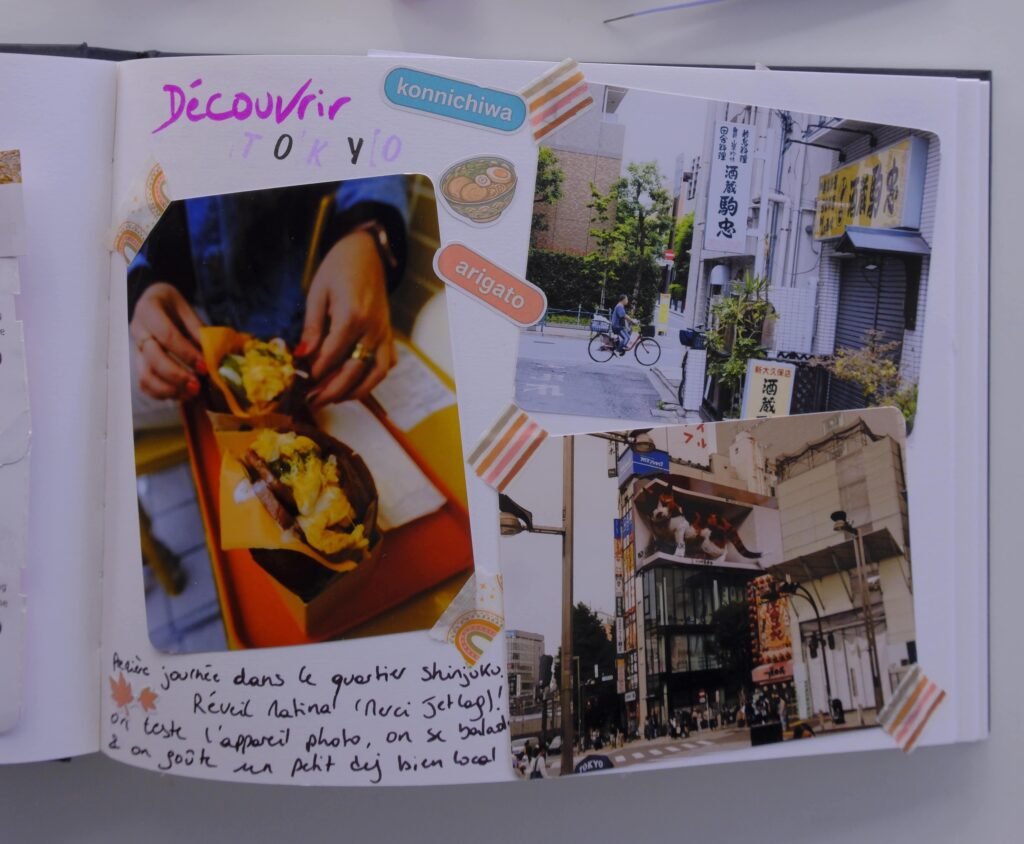 Découvrir
TOKYO
konnichiwa
arigato
Première journée dans le quartier Shinjuku.
Réveil Matinal (Merci Jetlag)!
on teste l'appareil photo, on se balade
& on goûte un petit dej bien local
酒蔵
駒忠
酒蔵駒忠
新大久保店
酒蔵
イル
TOKYO